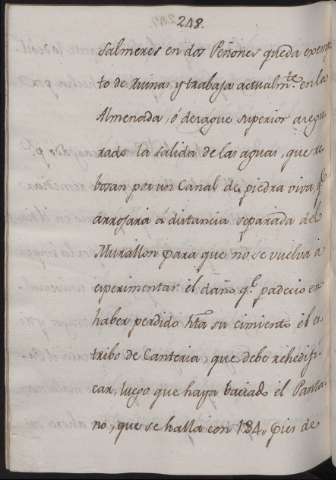 248.
Salmeres en dos Peñones queda exen
to de Ruinas, y trabaja actualmte. en las
Almenada, ó desague superior asegu
rado la salida de las aguas, que re
bosan por un Canal de piedra viva q.
arrojara á distancia separada del
Murallon para que no se vuelva á
experimentar el daño q.e padecio en
haber perdido hta su cimiento el es
tribo de Canteria que debe rehedifi
car, luego que haya vaciado el Panta
no, que se halla con 134, Pies de